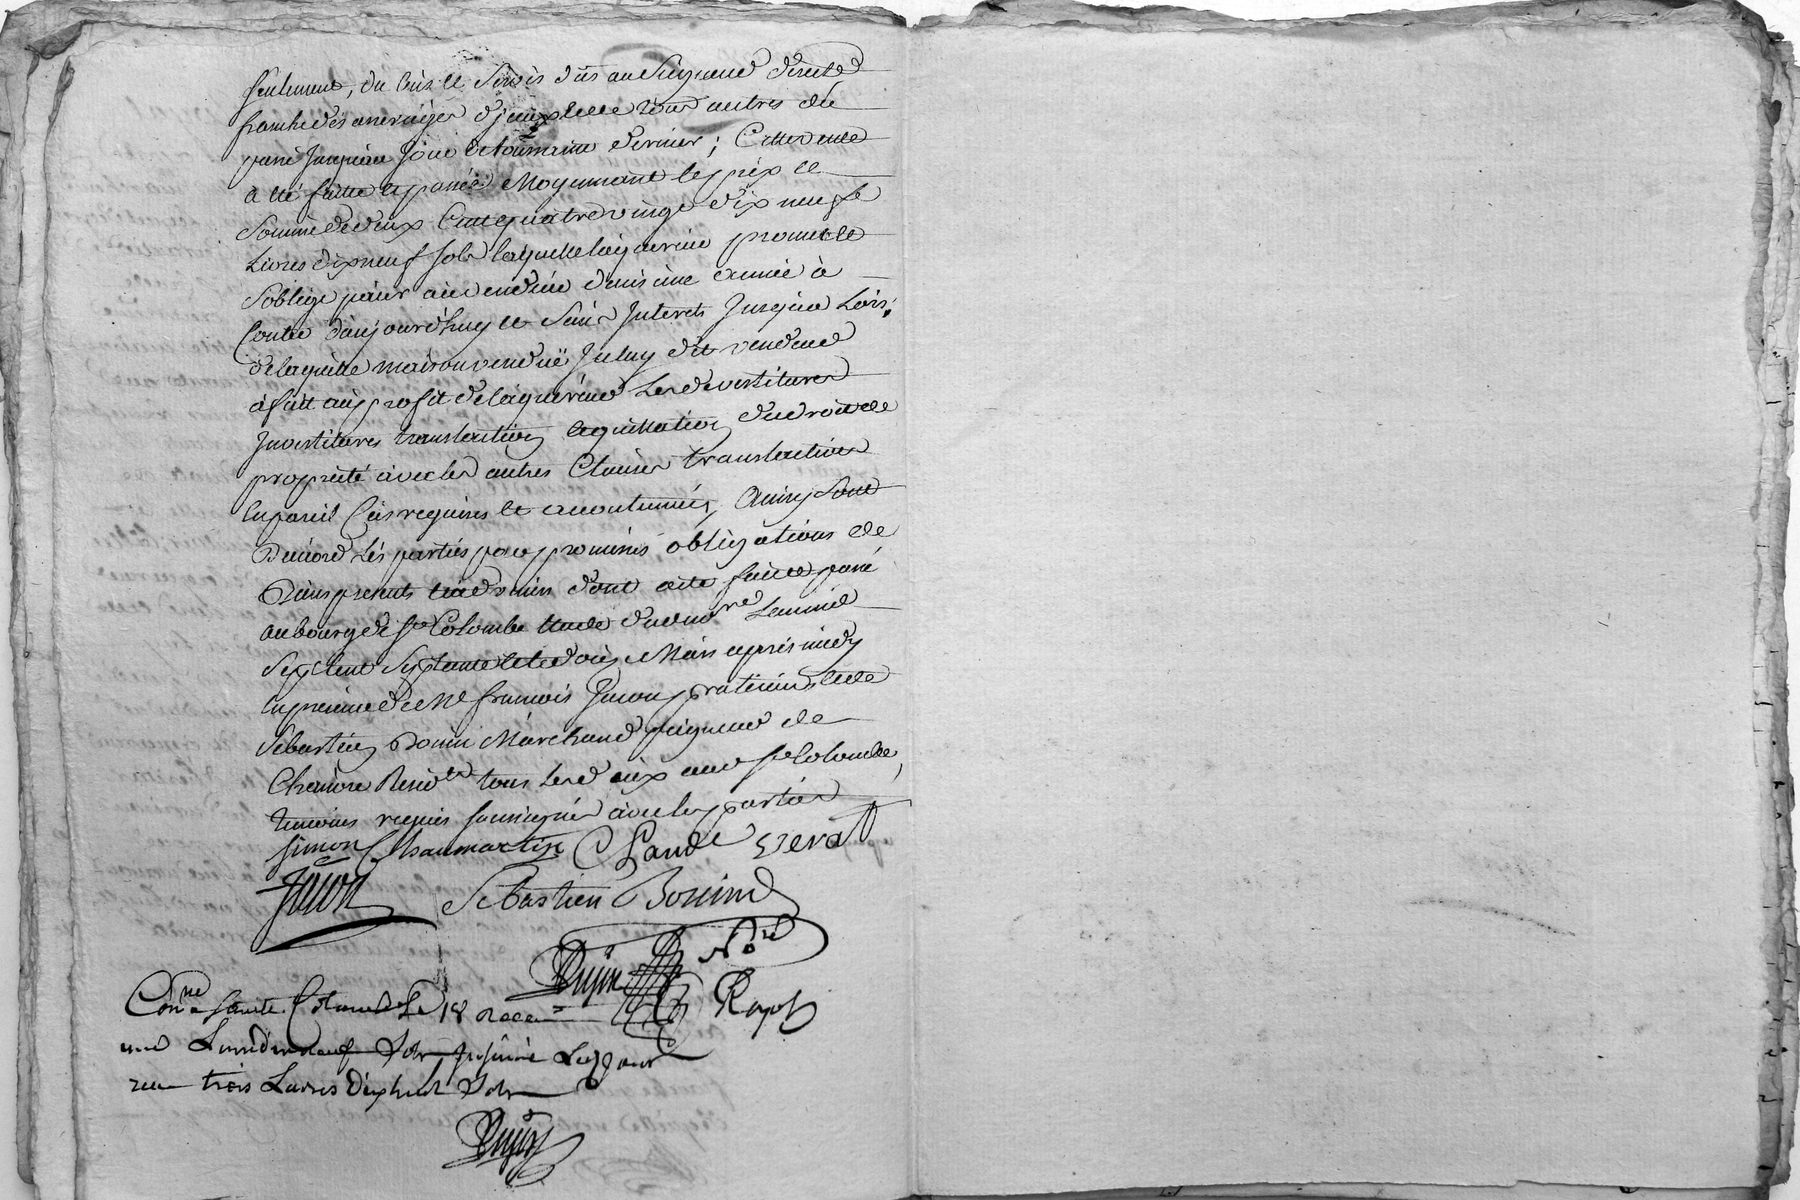 seulement, du Cens et Servis dus au Seigneur directe
franche des arrerages d'jceux et de tous autres du
passé Jusqu'au Jour de toussaint dernier ; Cette vente
a été faitte et passée Moyennant le prix et
Somme de deux Cent quatre vingt dix neuf
Livres dix neuf sols laquelle laquereur promet et
s'oblige païer au vendeur dans une année à
Conter d'aujourd'huy et Sans Interets Jusqu'a Lors ;
de laquelle maison venduë Jceluy dit vendeur
à fait au profit de laquereur Les devestitures
Jnvestitures translation et quittation du droit de
propriété avec les autres Clauses translatives
En pareil Cas requises et accoutumées, Ainsy Sont
D'accord Les parties par promesses obligations de
Biens presents et à venir dont acte fait et passé
au bourg de Ste Colombe Etude du no.re L'an mil
Sept Cent Septante et le dous Mars après midy
En presence de Me françois Jacon praticien et de
Sebastien Bonin Marchand peigneur de
Chanvre Resid.ts tous Les deux aud. Ste Colombe,
temoins requis soussignés avec les parties
Simon Chaumartin Claude Serat
Jacon Sebastien Bonind
Dujin No.re
Con.lé a Sainte Colombe Le 18 Rayot
sols Jnsinué Led. Jour
trois Livres dixhuit Sols
Dujin